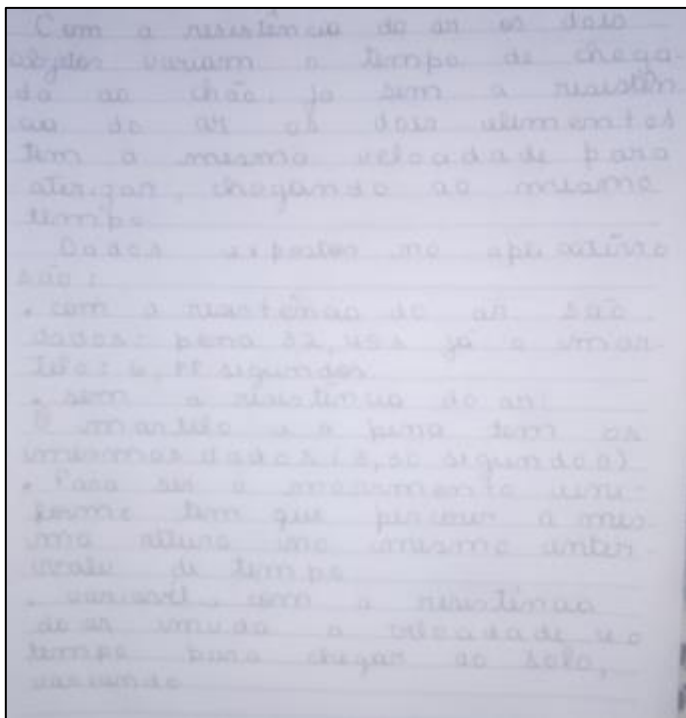 Com a resistência do ar os dois
objetos variam o tempo de chega-
da ao chão, já sem a resistên
cia do ar os dois alimentos
tem a mesma velocidade para
aterizar, chegando ao mesmo
tempo
Dados expostos no aplicativo
são:
. com a resistência do ar são
dados: pena 32,42s já o mar
telo: 6,11 segundos
. sem a resistência do ar:
O martelo e a pena tem os
mesmos dados (5,50 segundos)
. Para ser o movimento uni-
forme tem que percorrer a mes
ma altura no mesmo inter
valo de tempo
. variavel, com a resistência
do ar muda a velocidade e o
tempo para chegar ao solo,
variando